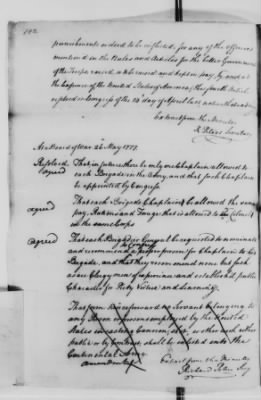 punishments ordered to be inflicted, for any of the offences
mentioned in the Rules and Articles for the better Government
of the Troops raised, or to be raised and kept in pay, by and at
the Expence of the United States of America,
in Congress of the 14th day of April last,
Extract from the Minutes
R. Peters Secretary
At a Board of War 26 May 1777.
Resolved That in future there be only one Chaplain allowed to
agreed each Brigade in the Army, and that such Chaplain
be appointed by Congress
That each Brigade Chaplain be allowed the same
agreed pay, Rations and Forage that is allowed to a Colonel
in the same Corps
agreed That each Brigadier General be requested to nominate
and recommend proper person for Chaplain to his
Brigade, and that they recommend none but such
as are Clergymen of experience and established public
Character for Piety Virtue and Learning
That from henceforward no Servant belonging to
any person employed by the United
States
Continental Army
Extract from the Minutes
Richard Peters Secy